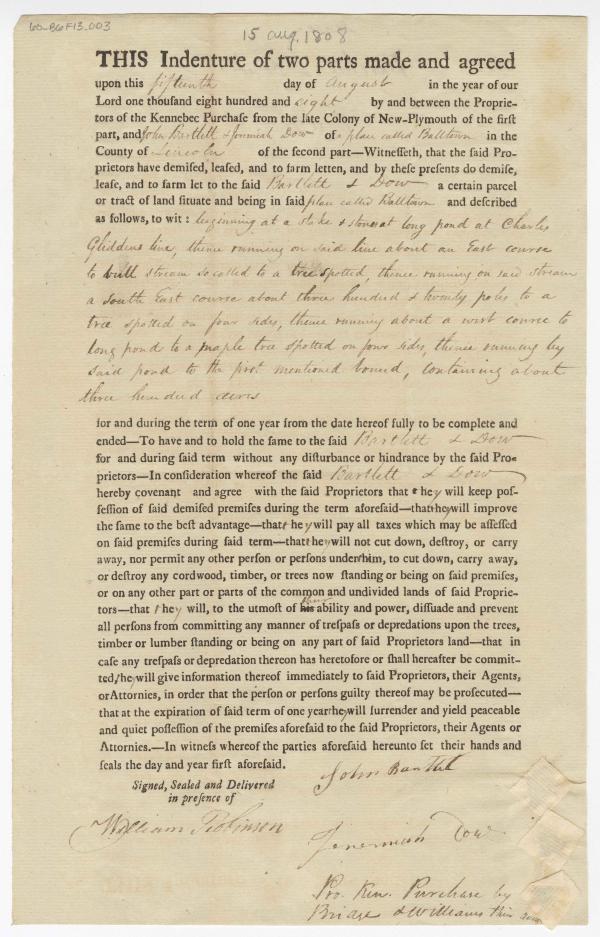 60-B6F13_003
15 aug. 1808
THIS Indenture of two parts made and agreed
upon this fifteenth day of august in the year of our
Lord one thousand eight hundred and eight by and between the Proprie-
tors of the Kennebec Purchase from the late Colony of New-Plymouth of the first
part, and John Bartlett & Jeremiah Dow of a place called Balltown in the
County of Lincoln of the second part—Witnesseth, that the said Pro-
prietors have demised, leased, and to farm letten, and by these presents do demise,
lease, and to farm let to the said Bartlett & Dow a certain parcel
or tract of land situate and being in said place called Balltown and described
as follows, to wit: beginning at a stake & stones at long pond at Charles
Gliddens line, thence running on said line about an East course
to bull stream so called to a tree spotted, thence running on said stream
a south East course about three hundred & twenty poles to a
tree spotted on four sides, thence running about a west course to
long pond to a maple tree spotted on four sides, thence running by
said pond to the first mentioned bound, containing about
three hundred acres
for and during the term of one year from the date hereof fully to be complete and
ended—To have and to hold the same to the said Bartlett & Dow
for and during said term without any disturbance or hindrance by the said Pro-
prietors—In consideration whereof the said Bartlett & Dow
hereby covenant and agree with the said Proprietors that they will keep pos-
session of said demised premises during the term aforesaid—that they will improve
the same to the best advantage—that they will pay all taxes which may be assessed
on said premises during said term—that they will not cut down, destroy, or carry
away, nor permit any other person or persons under him, to cut down, carry away,
or destroy any cordwood, timber, or trees now standing or being on said premises,
or on any other part or parts of the common and undivided lands of said Proprie-
tors—that they will, to the utmost of their ability and power, dissuade and prevent
all persons from committing any manner of trespass or depredations upon the trees,
timber or lumber standing or being on any part of said Proprietors land—that in
case any trespass or depredation thereon has heretofore or shall hereafter be commit-
ted, they will give information thereof immediately to said Proprietors, their Agents,
or Attornies, in order that the person or persons guilty thereof may be prosecuted—
that at the expiration of said term of one year they will surrender and yield peaceable
and quiet possession of the premises aforesaid to the said Proprietors, their Agents or
Attornies.—In witness whereof the parties aforesaid hereunto set their hands and
seals the day and year first aforesaid.
John Bartlet
Signed, Sealed and Delivered
in presence of
William Robinson
Jeremiah Dow
Pro. Ken. Purchase by
Bridge & Williams their